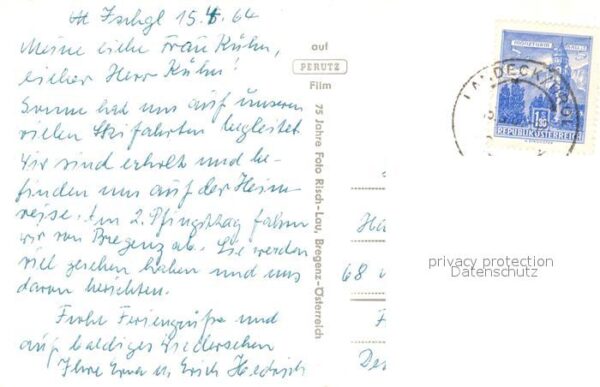 Ischgl 15.4.64
Meine liebe Frau Kühn,
lieber Herr Kühn!
Sonne hat uns auf unseren
vielen Skifahrten begleitet.
Wir sind erholt und be-
finden uns auf der Heim-
reise. Am 2. Pfingsttag fahren
wir von Bregenz ab. Sie werden
viel gesehen haben und uns
davon berichten.
Frohe Feriengrüße und
auf baldiges Wiedersehen
Ihre Erna u. Erich
auf
PERUTZ
Film
75 Jahre Foto Risch-Lau, Bregenz-Österreich
MÜNZTURM HALL I.T.
LANDECK, TIROL
REPUBLIK ÖSTERREICH
68
privacy protection
Datenschutz